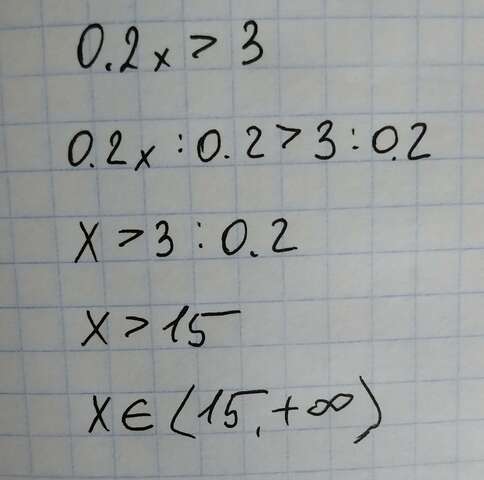 0.2x > 3
0.2x : 0.2 > 3 : 0.2
x > 3 : 0.2
x > 15
x ∈ (15, +∞)